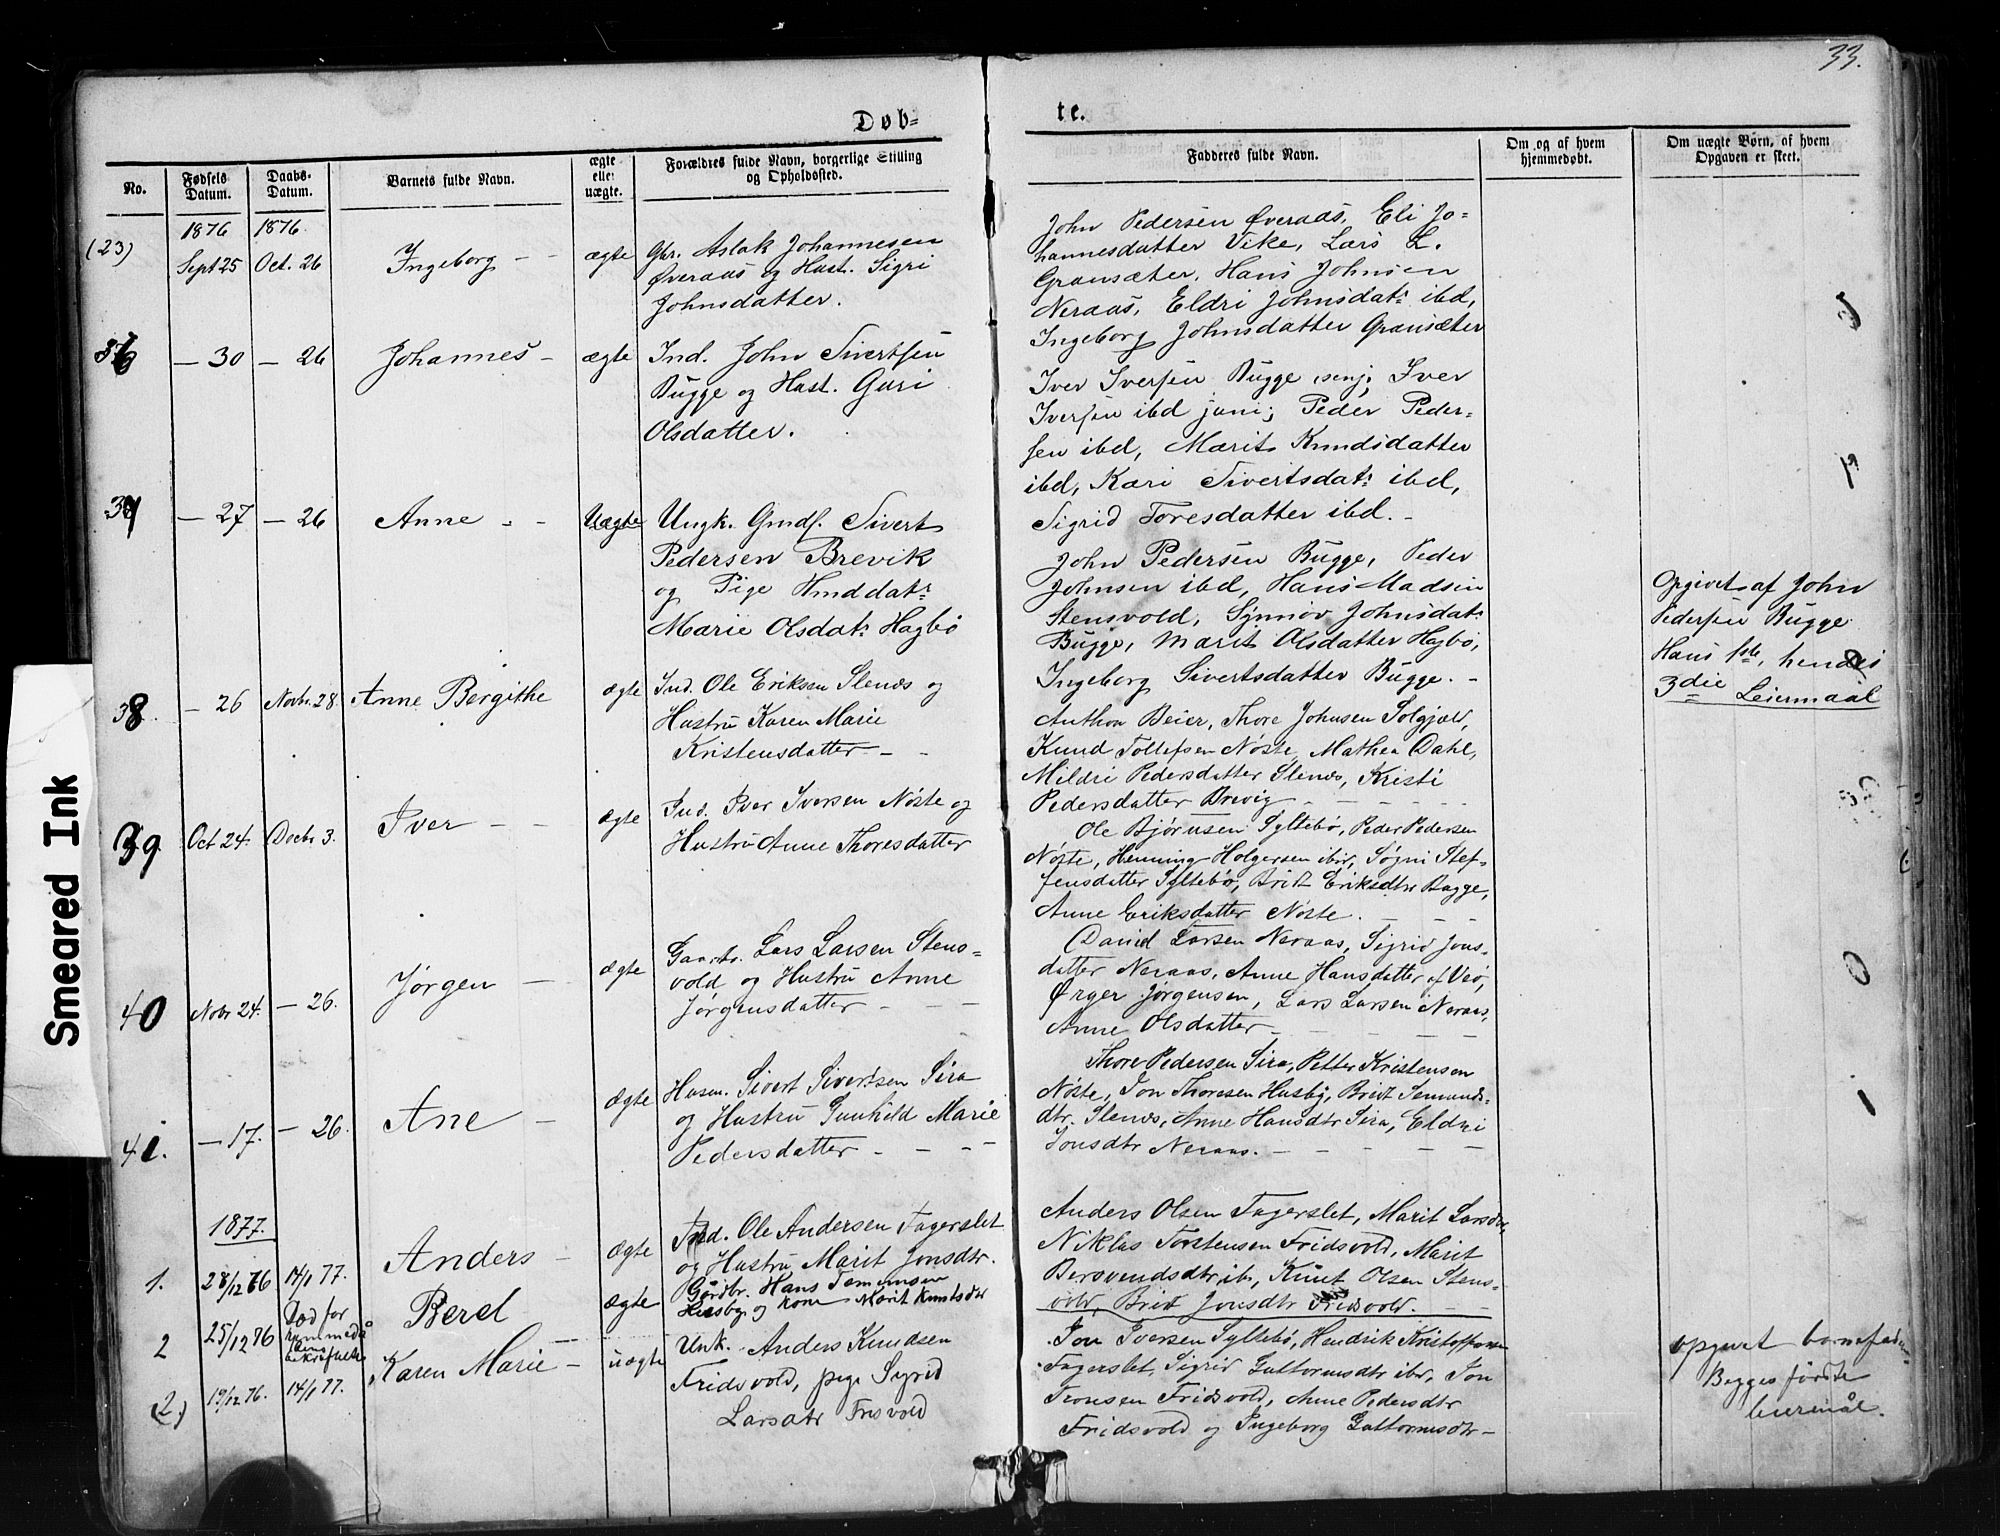 33.
Døb-
te.
No.
Fødsels
Datum.
Daabs-
Datum.
Barnets fulde Navn.
ægte
eller
uægte.
Forældres fulde Navn, borgerlige Stilling
og Opholdssted.
Fadderes fulde Navn.
Om og af hvem
hjemmedøbt.
Om uægte Børn, af hvem
Opgaven er skeet.
1876 1876
(23)
Sept 25
Oct. 26
Ingeborg - -
ægte
Gbr. Aslak Johannesen
Øveraas og Hust. Sigri
Johnsdatter.
John Pedersen Øveraas, Eli Jo-
hannesdatter Vike, Lars L.
Gransæter, Hans Johnsen
Neraas, Eldri Johnsdat: ibd,
Ingeborg Johnsdatter Gransæter
36
- 30
- 26
Johannes -
ægte
Ind. John Sivertsen
Bugge og Hust. Guri
Olsdatter.
Iver Iversen Bugge senj; Iver
Iversen ibd juni; Peder Peder-
sen ibd, Marit Knudsdatter
ibd, Kari Sivertsdat: ibd,
Sigrid Toresdatter ibd. -
37
- 27
- 26
Anne - -
Uægte
Ungk. Gmdf. Sivert
Pedersen Brevik
og Pige Hmddat:
Marie Olsdat: Hagbø
John Pedersen Bugge, Peder
Johnsen ibd, Hans Madsen
Stensvold, Synnøv Johnsdat:
Bugge, Marit Olsdatter Hagbø,
Ingeborg Sivertsdatter Bugge. -
Opgivet af John
Pedersen Bugge
Hans 1ste, hendes
3die Leiermaal
38
- 26
Novbr. 28.
Anne Bergithe
ægte
Ind. Ole Eriksen Slenæs og
Hustru Karen Marie
Kristensdatter - -
Anthon Beier, Thore Johnsen Solgjeld,
Knud Tollefsen Nøste, Mathea Dahl,
Mildri Pedersdatter Slenæs, Kristi
Pedersdatter Brevig - - - -
39
Oct 24.
Decbr 3.
Iver - -
ægte
Ind. Iver Iversen Nøste og
Hustru Anne Thoresdatter
Ole Bjørnsen Syltebø, Peder Pedersen
Nøste, Henning Holgersen ibid, Søgni Stef-
fensdatter Syltebø, Brit Eriksdtr Bugge,
Anne Eriksdatter Nøste. - - -
40
Novbr 24.
- 26.
Jørgen -
ægte
Gaardbr. Lars Larsen Stens-
vold og Hustru Anne
Jørgensdatter - - -
David Larsen Neraas, Sigrid Jons-
datter Neraas, Anne Hansdatter af Veø,
Ørger Jørgensen, Lars Larsen Neraas,
Anne Olsdatter - - - -
41.
- 17.
- 26.
Ane -
Ægte
Husm. Sivert Sivertsen Sira
og Hustru Gunhild Marie
Pedersdatter - - -
Thore Pedersen Sira, Petter Kristensen
Nøste, Jon Thoresen Husby, Brit Semunds-
dtr. Slenæs, Anne Hansdtr Sira, Eldri
Jonsdtr Neraas. - - - -
1877.
1.
28/12 76
14/1 77.
Anders -
Ægte
Ind. Ole Andersen Fagerslet
og Hustru Marit Jonsdtr.
Anders Olsen Fagerslet, Marit Larsdtr,
Niklas Torstensen Fridsvold, Marit
Bersvendsdtr ib, Knut Olsen Stens-
vold, Brit Jonsdtr Fridsvold. - -
2
25/12 76
Død før
Berel
ægte
Gårdbr. Hans
Husby og kone Marit Knutsdtr
(2.)
19/12 76.
14/1 77.
Karen Marie -
uægte
Unk. Anders Knudsen
Fridsvold, pige Sigrid
Larsdtr Frisvold
Jon Iversen Syltebø, Hendrik Kristoffersen
Fagerslet, Sigrid Guttormsdtr ibd, Jon
Tronsen Fridsvold, Anne Pedersdtr
Fridsvold og Ingeborg Guttormsdtr -
opgivet barnefader
Begges første
leiermål.
Smeared Ink